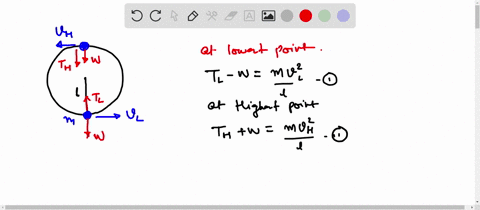 V_H
T_H W
l T_L
m V_L
W
at lowest point.
T_L - W = mV_L^2/l - ①
at Highest point
T_H + W = mV_H^2/l - ①